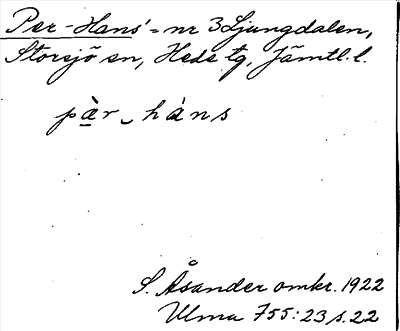 Per-Hans' = nr 3 Ljungdalen,
Storsjö sn, Hede tg, Jämtl. l.
pæ̀r‿hàns
S. Åsander omkr. 1922
Ulma 755:23 s. 22